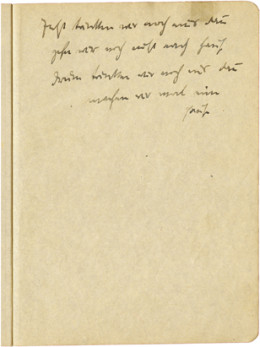 Jetzt trinken wir noch eins dan
gehn wir noch nicht nach Haus
trinken wir noch eins dan
machen wir mal eine